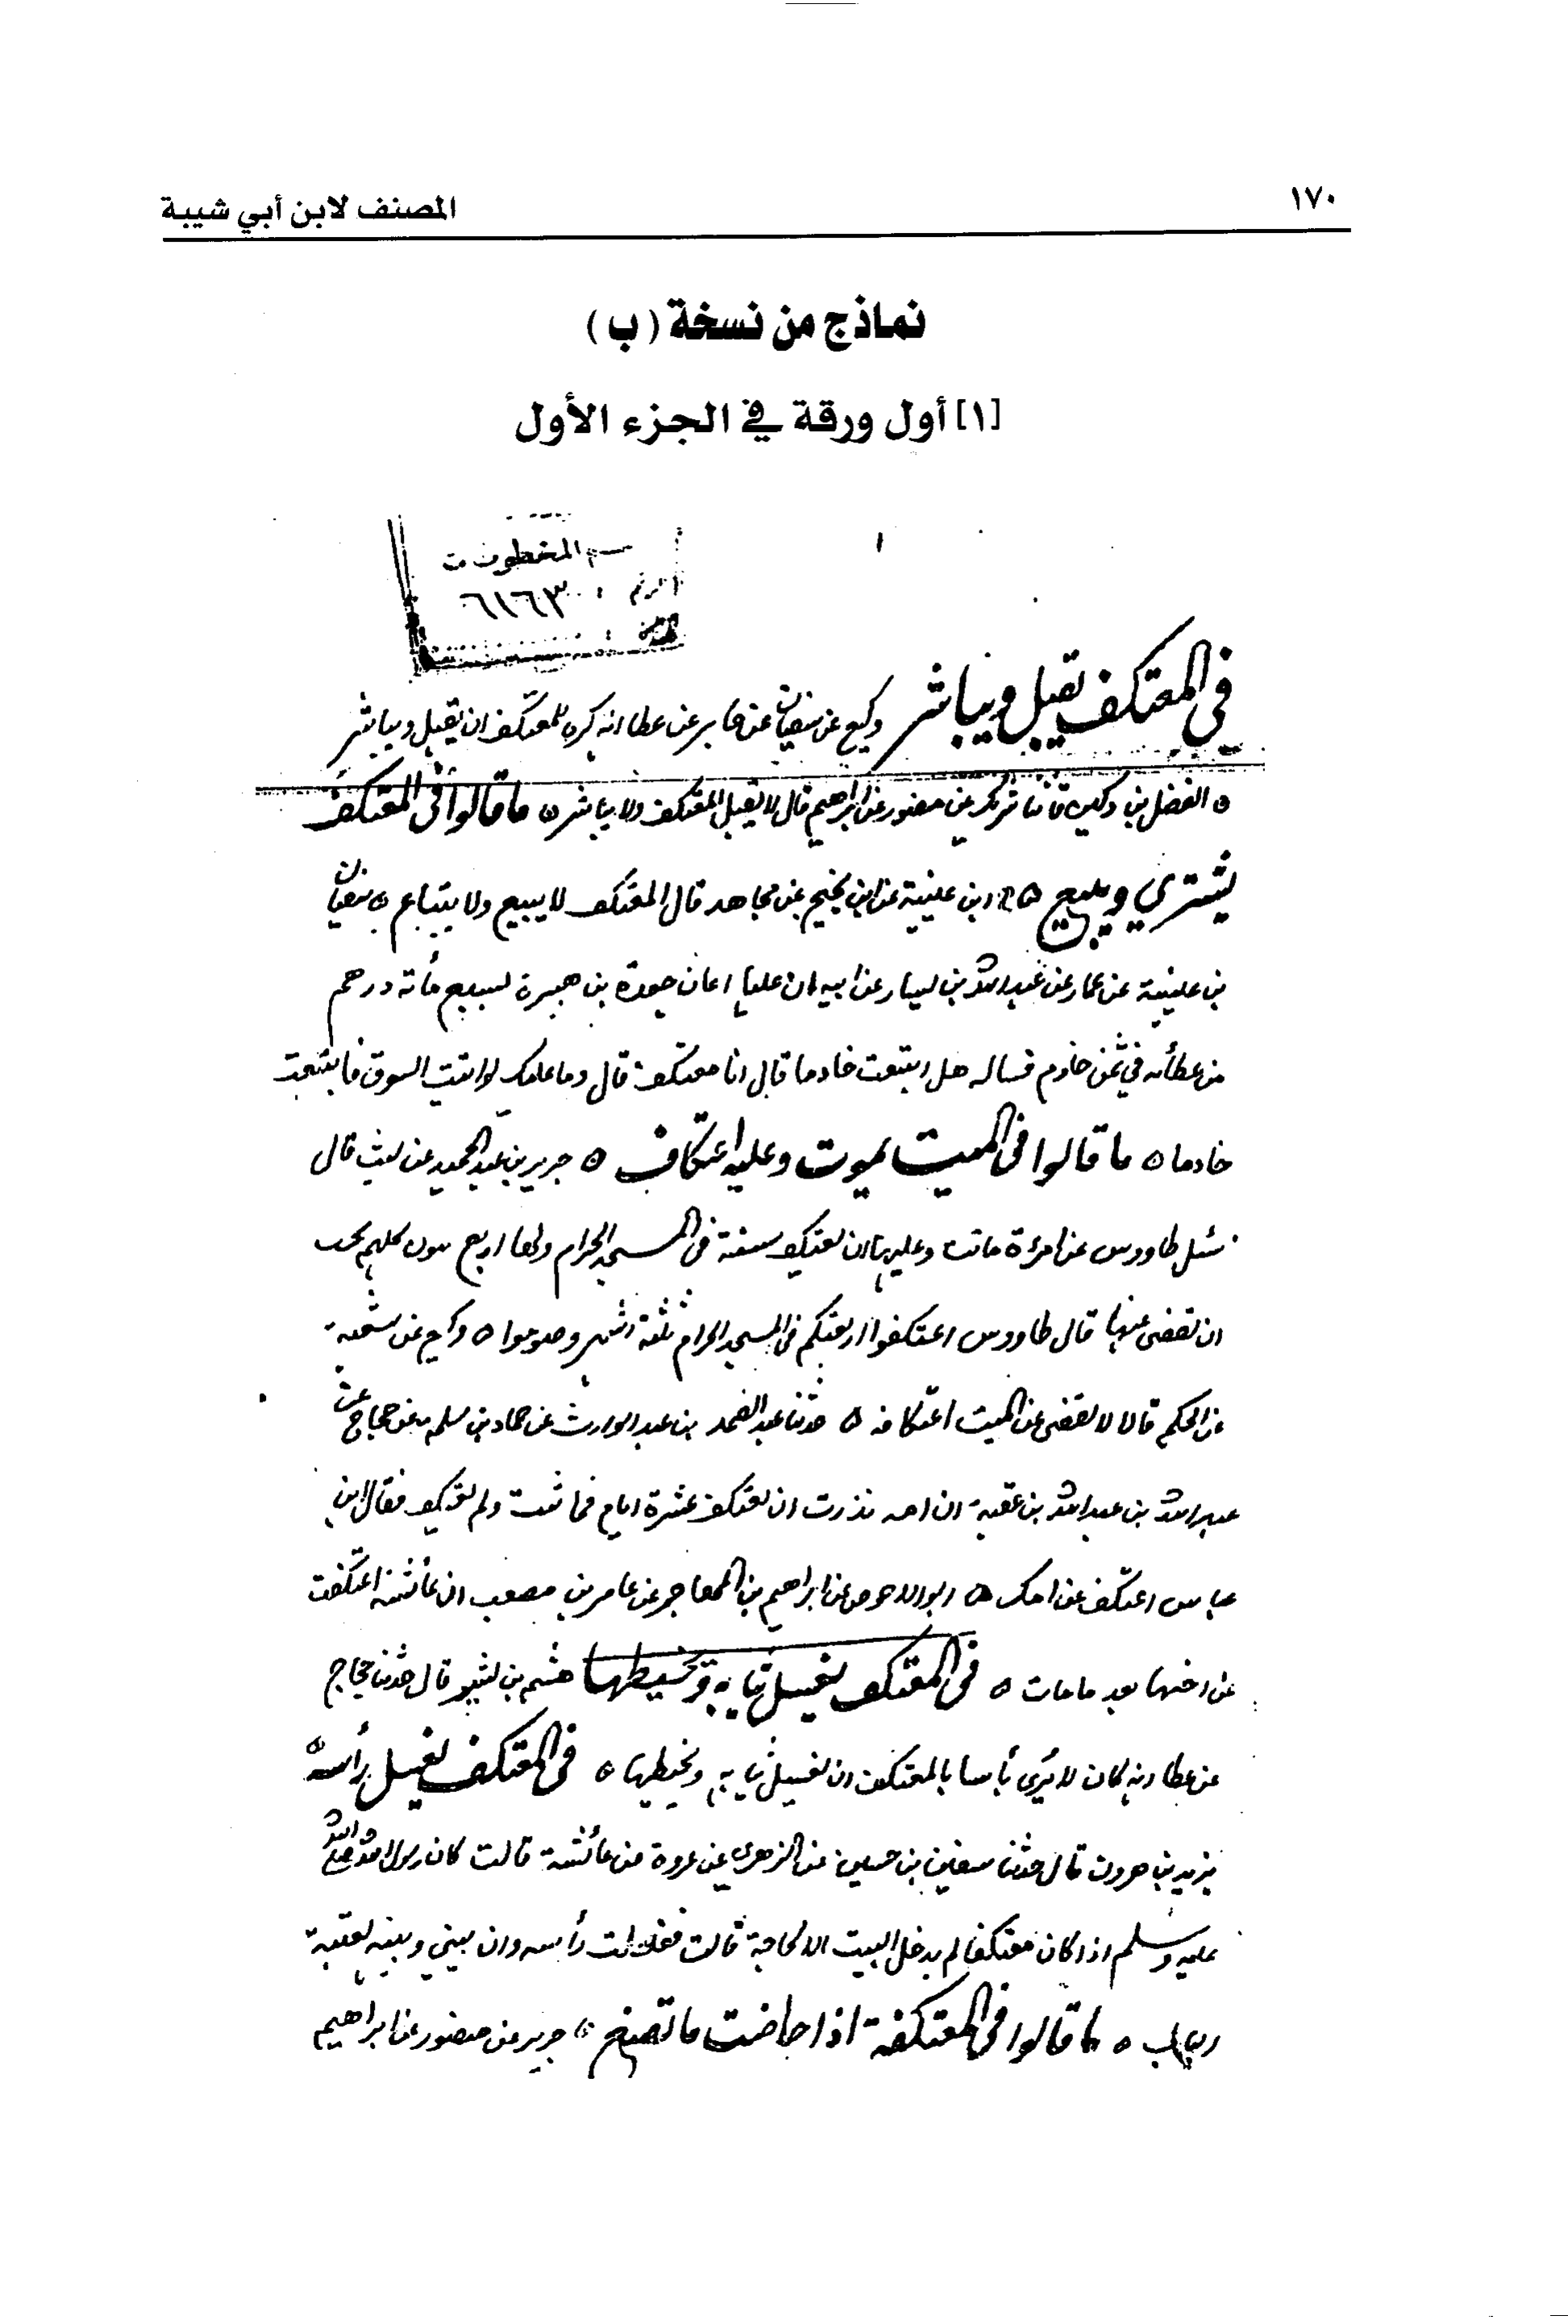 ١٧٠
المصنف لابن أبي شيبة
نماذج من نسخة (ب)
[١] أول ورقة في الجزء الأول
١
المخطوطات
الرقم ٦١٦٣
في المعتكف يقبل ويباشر وكيع عن سفيان عن جابر عن عطا انه كره للمعتكف ان يقبل ويباشر
٥ الفضل بن دكين قال نا شريك عن منصور عن ابراهيم قال لا يقبل المعتكف ولا يباشر ٥ ما قالوا في المعتكف
يشتري ويبيع ٥ ابن عيينة عن ابن نجيح عن مجاهد قال المعتكف لا يبيع ولا يبتاع ٥ سفيان
بن عيينة عن عمار عن عبد الله بن يسار عن ابيه ان عليا اعان جعدة بن هبيرة بسبع مأئة درهم
من عطائه في ثمن خادم فساله هل ابتعت خادما قال انا معتكف قال وما عليك لو اتيت السوق فابتعت
خادما ٥ ما قالوا في الميت يموت وعليه اعتكاف ٥ جرير بن عبد الحميد عن ليث قال
سئل طاووس عن امرءة ماتت وعليها ان تعتكف سنة في المسجد الحرام ولها اربع بنون كلهم يحب
ان يقضى عنها قال طاووس اعتكفوا اربعتكم في المسجد الحرام ثلثة اشهر وصوموا ٥ وكيع عن شعبة
عن الحكم قال لا يقضى عن الميت اعتكافه ٥ حدثنا عبد الصمد بن عبد الوارث عن حماد بن سلمه عن حجاج عن
عبد الله بن عبد الله بن عقبة ان امه نذرت ان تعتكف عشرة ايام فماتت ولم تعتكف فقال ابن
عباس اعتكف عن امك ٥ ابو الاحوص عن ابراهيم بن المهاجر عن عامر بن مصعب ان عائشة اعتكفت
عن اخيها بعد ما مات ٥ في المعتكف يغسل ثيابه ويخيطها هشيم بن بشير قال حدثنا حجاج
عن عطا انه كان لا يرى بأسا بالمعتكف ان يغسل ثيابه ويخيطها ٥ في المعتكف يغسل رأسه ٥
يزيد بن هرون قال حدثنا سفين بن حسين عن الزهري عن عروة عن عائشة قالت كان رسول الله صلى الله
عليه وسلم اذا كان معتكفا لم يدخل البيت الا لحاجة قالت فغسلت رأسه وان بيني وبينه لعتبة
الباب ٥ ما قالوا في المعتكفة اذا حاضت ما تصنع ٥ جرير عن منصور عن ابراهيم